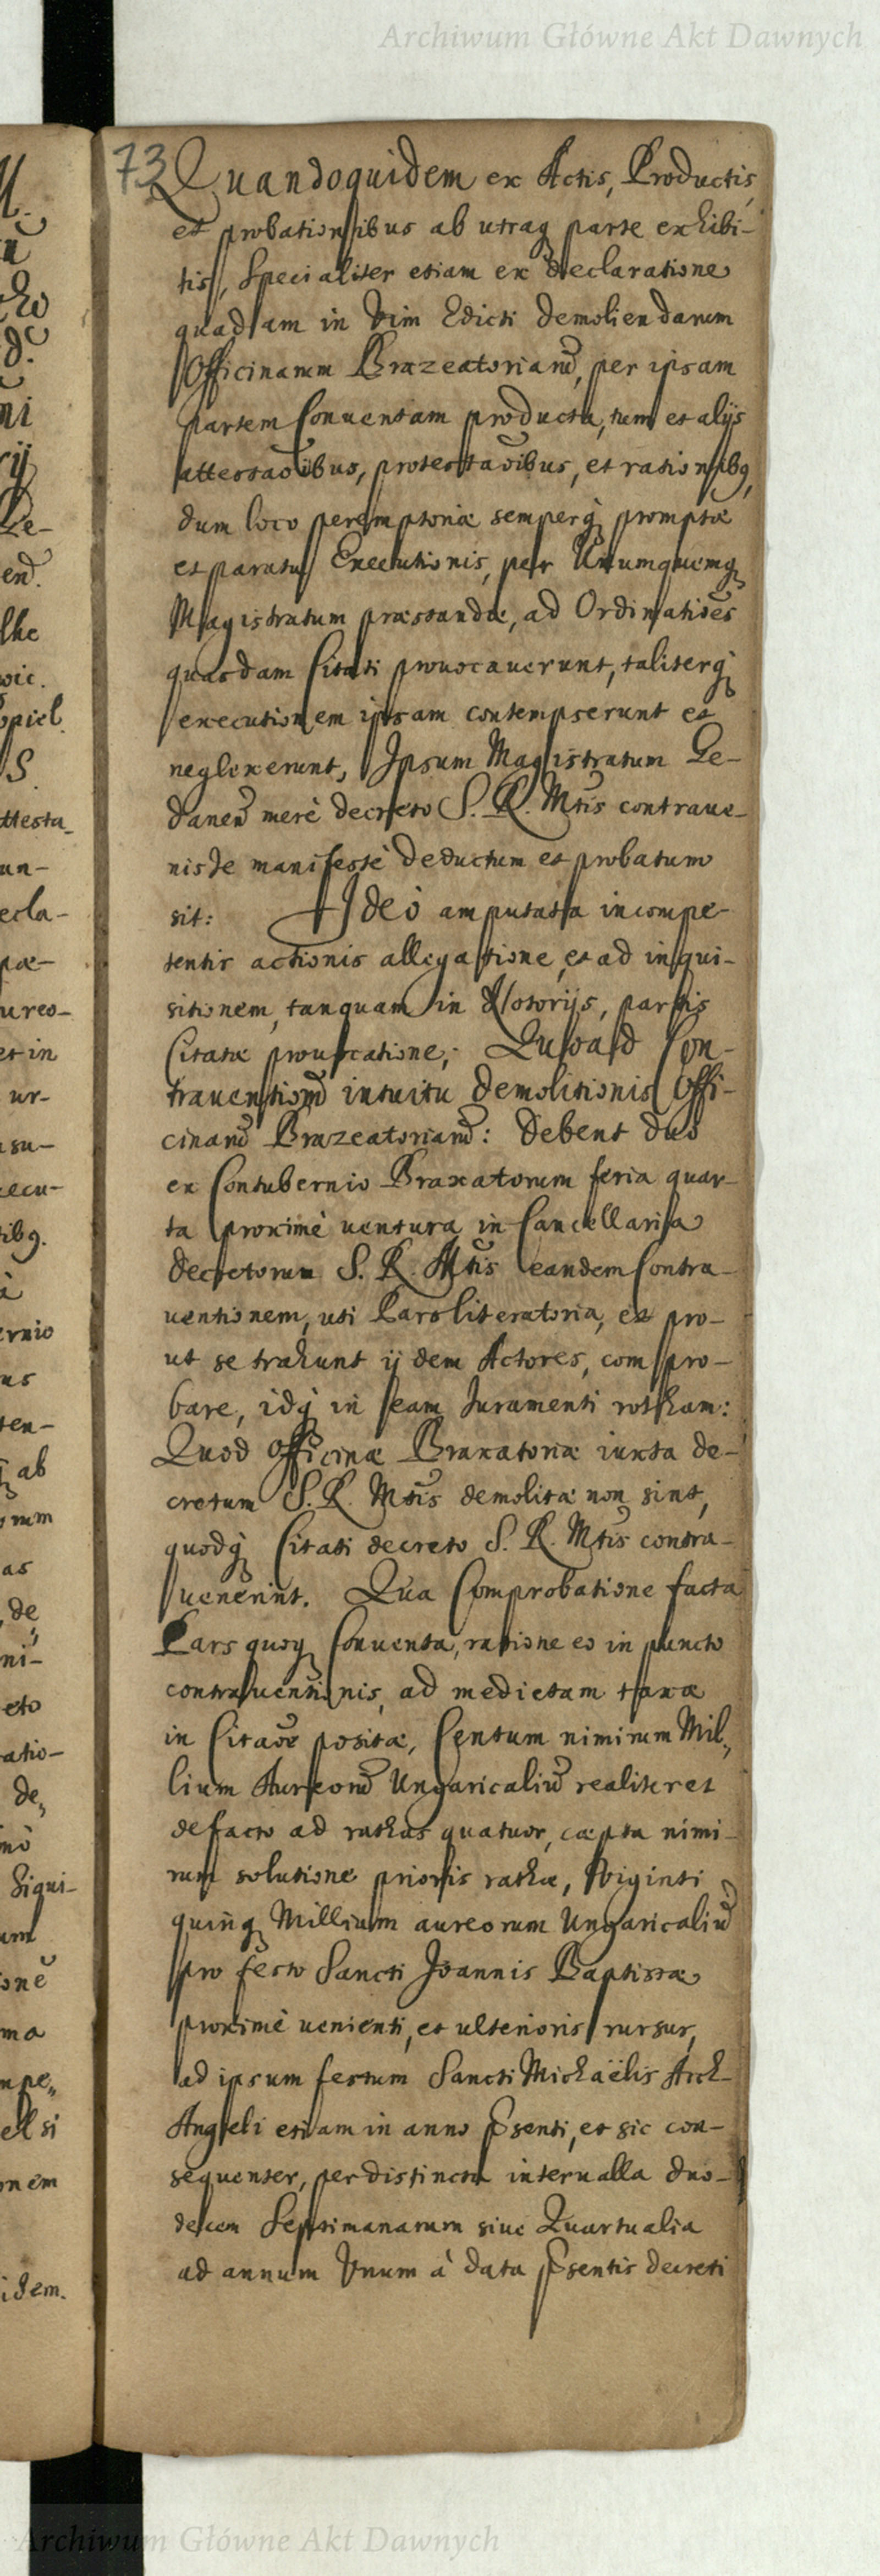 Archiwum Główne Akt Dawnych
73
Quandoquidem ex Actis, Productis,
et probationibus ab utraq parte exhibi-
tis, Specialiter etiam ex declaratione
quadam in Vim Edicti demoliendarum
Officinarum Brazeatoriarũ, per ipsam
partem Conventam producta, tum et alijs
attestaõibus, protestaõibus, et rationibq,
dum loco peremptoriæ semperq promptæ
et paratæ Executionis, per Unumquemq
Magistratum præstandæ, ad Ordinatiões
quasdam Citati provocaverunt, taliterq
executionem ipsam contempserunt et
neglexerunt, Ipsum Magistratum Ge-
danen̄ merè decreto S. R. Mtĩs contrave-
nisse manifestè deductum et probatum
sit: Ideò amputata incompe-
tentis actionis allegatione, et ad inqui-
sitionem, tanquam in Notorijs, partis
Citatæ provocatione; Quoad Con-
traventionẽ intuitu demolitionis Offi-
cinarũ Brazeatoriarũ: debent duo
ex Contubernio Braxatorum feria quar-
ta proximè ventura in Cancellaria
decretorum S. R. Mtĩs eandem Contra-
ventionem, uti Pars literatoria, et pro-
ut se trahunt ijdem Actores, compro-
bare, idq in eam Iuramenti rotham:
Quod Officinæ Braxatoriæ iuxta de-
cretum S. R. Mtĩs demolitæ non sint,
quodq Citati decreto S. R. Mtĩs contra-
venerint. Qua Comprobatione facta
Pars quoq Conventa, ratione eo in puncto
contraventionis, ad medietam taxæ
in Citaõe positæ, Centum nimirum Mil,,
lium Aureorũ Ungaricaliũ realiter et
defacto ad rathas quatuor, cæpta nimi-
rum solutione prioris rathæ, Viginti
quinq Millium aureorum Ungaricaliũ
pro festo Sancti Joannis Baptistæ
proximè venienti, et ulterioris rursus,
ad ipsum festum Sancti Michaëlis Arch-
Angeli etiam in anno Psenti, et sic con-
sequenter, per distincta intervalla duo-
decem Septimanarum sive Quartualia
ad annum Vnum à data Psentis decreti
Archiwum Główne Akt Dawnych